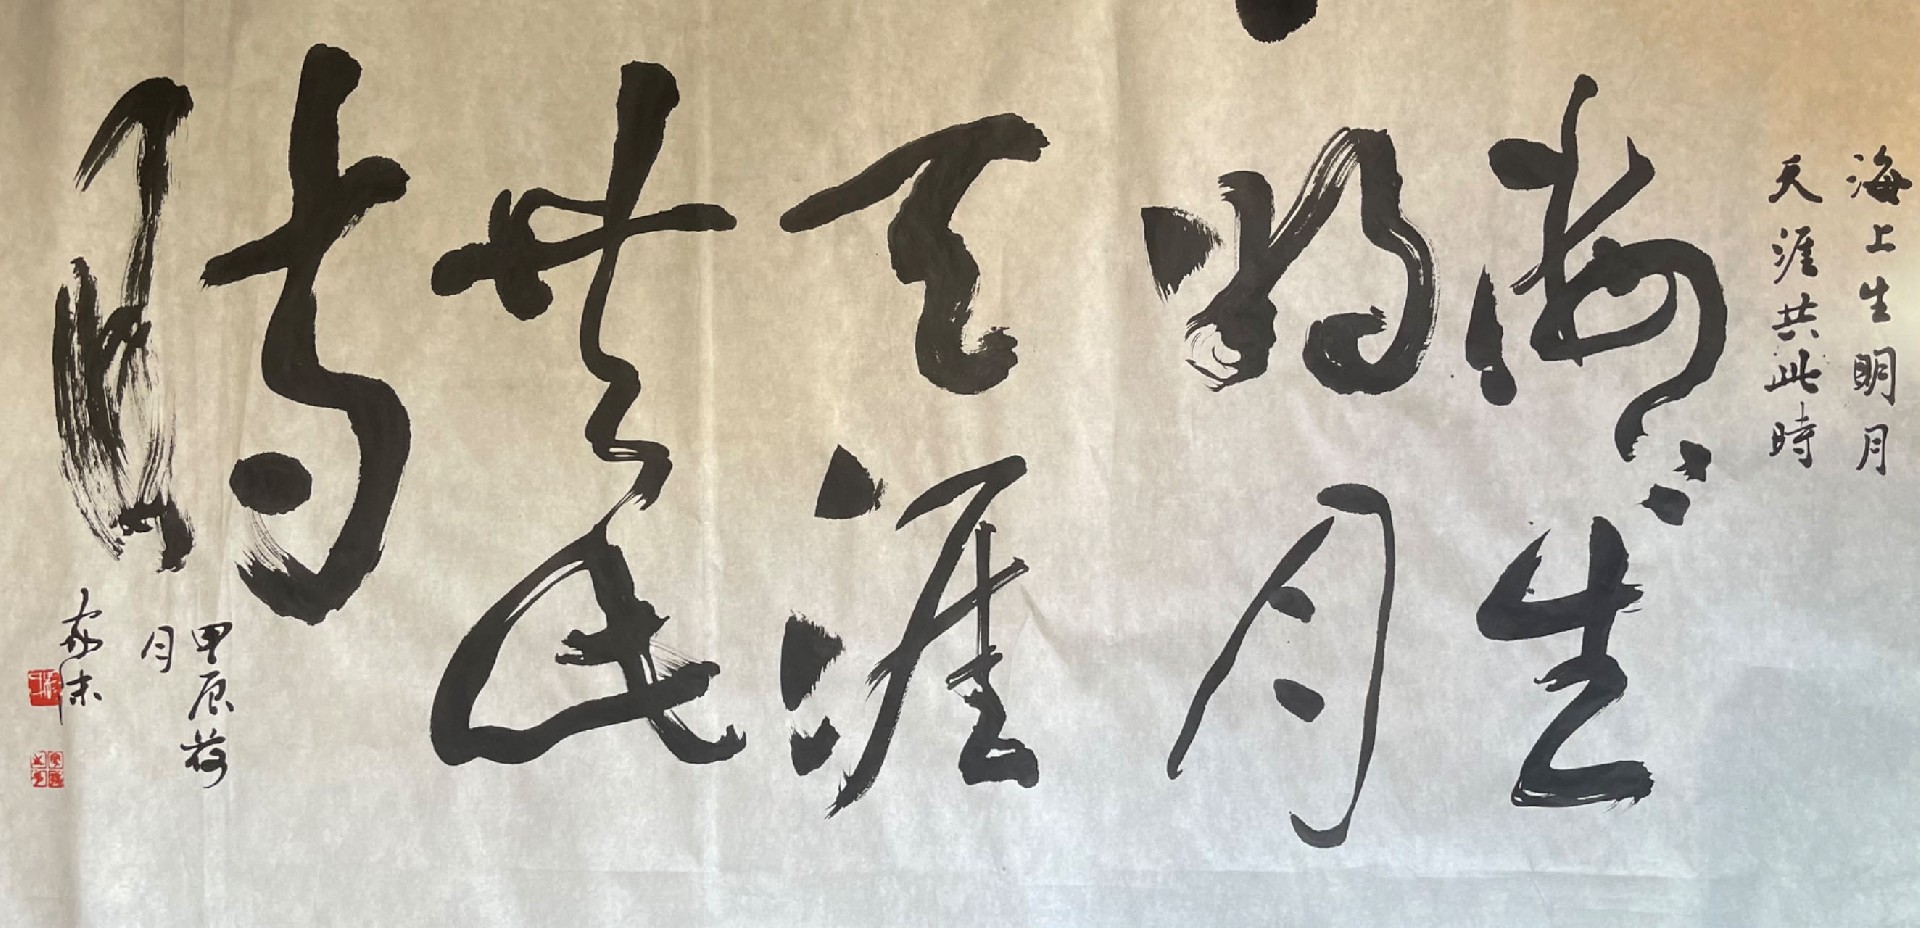 海上生明月
天涯共此時
海上生
明月
天涯
共此
時
甲辰荷
月